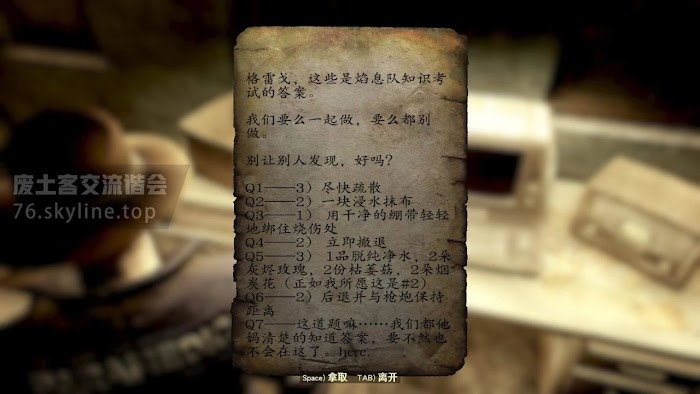 格雷戈，这些是焰息队知识考
试的答案。
我们要么一起做，要么都别
做。
别让别人发现，好吗？
Q1——3）尽快疏散
Q2——2）一块浸水抹布
Q3——1）用干净的绷带轻轻
地绑住烧伤处
Q4——2）立即撤退
Q5——3）1品脱纯净水，2朵
灰烬玫瑰，2份枯萎菇，2朵烟
炭花（正如我所愿这是#2）
Q6——2）后退并与枪炮保持
距离
Q7——这道题嘛……我们都他
妈清楚的知道答案，要不然也
不会在这了。here.
废土客交流谐会
76.skyline.top
Space) 拿取 TAB) 离开